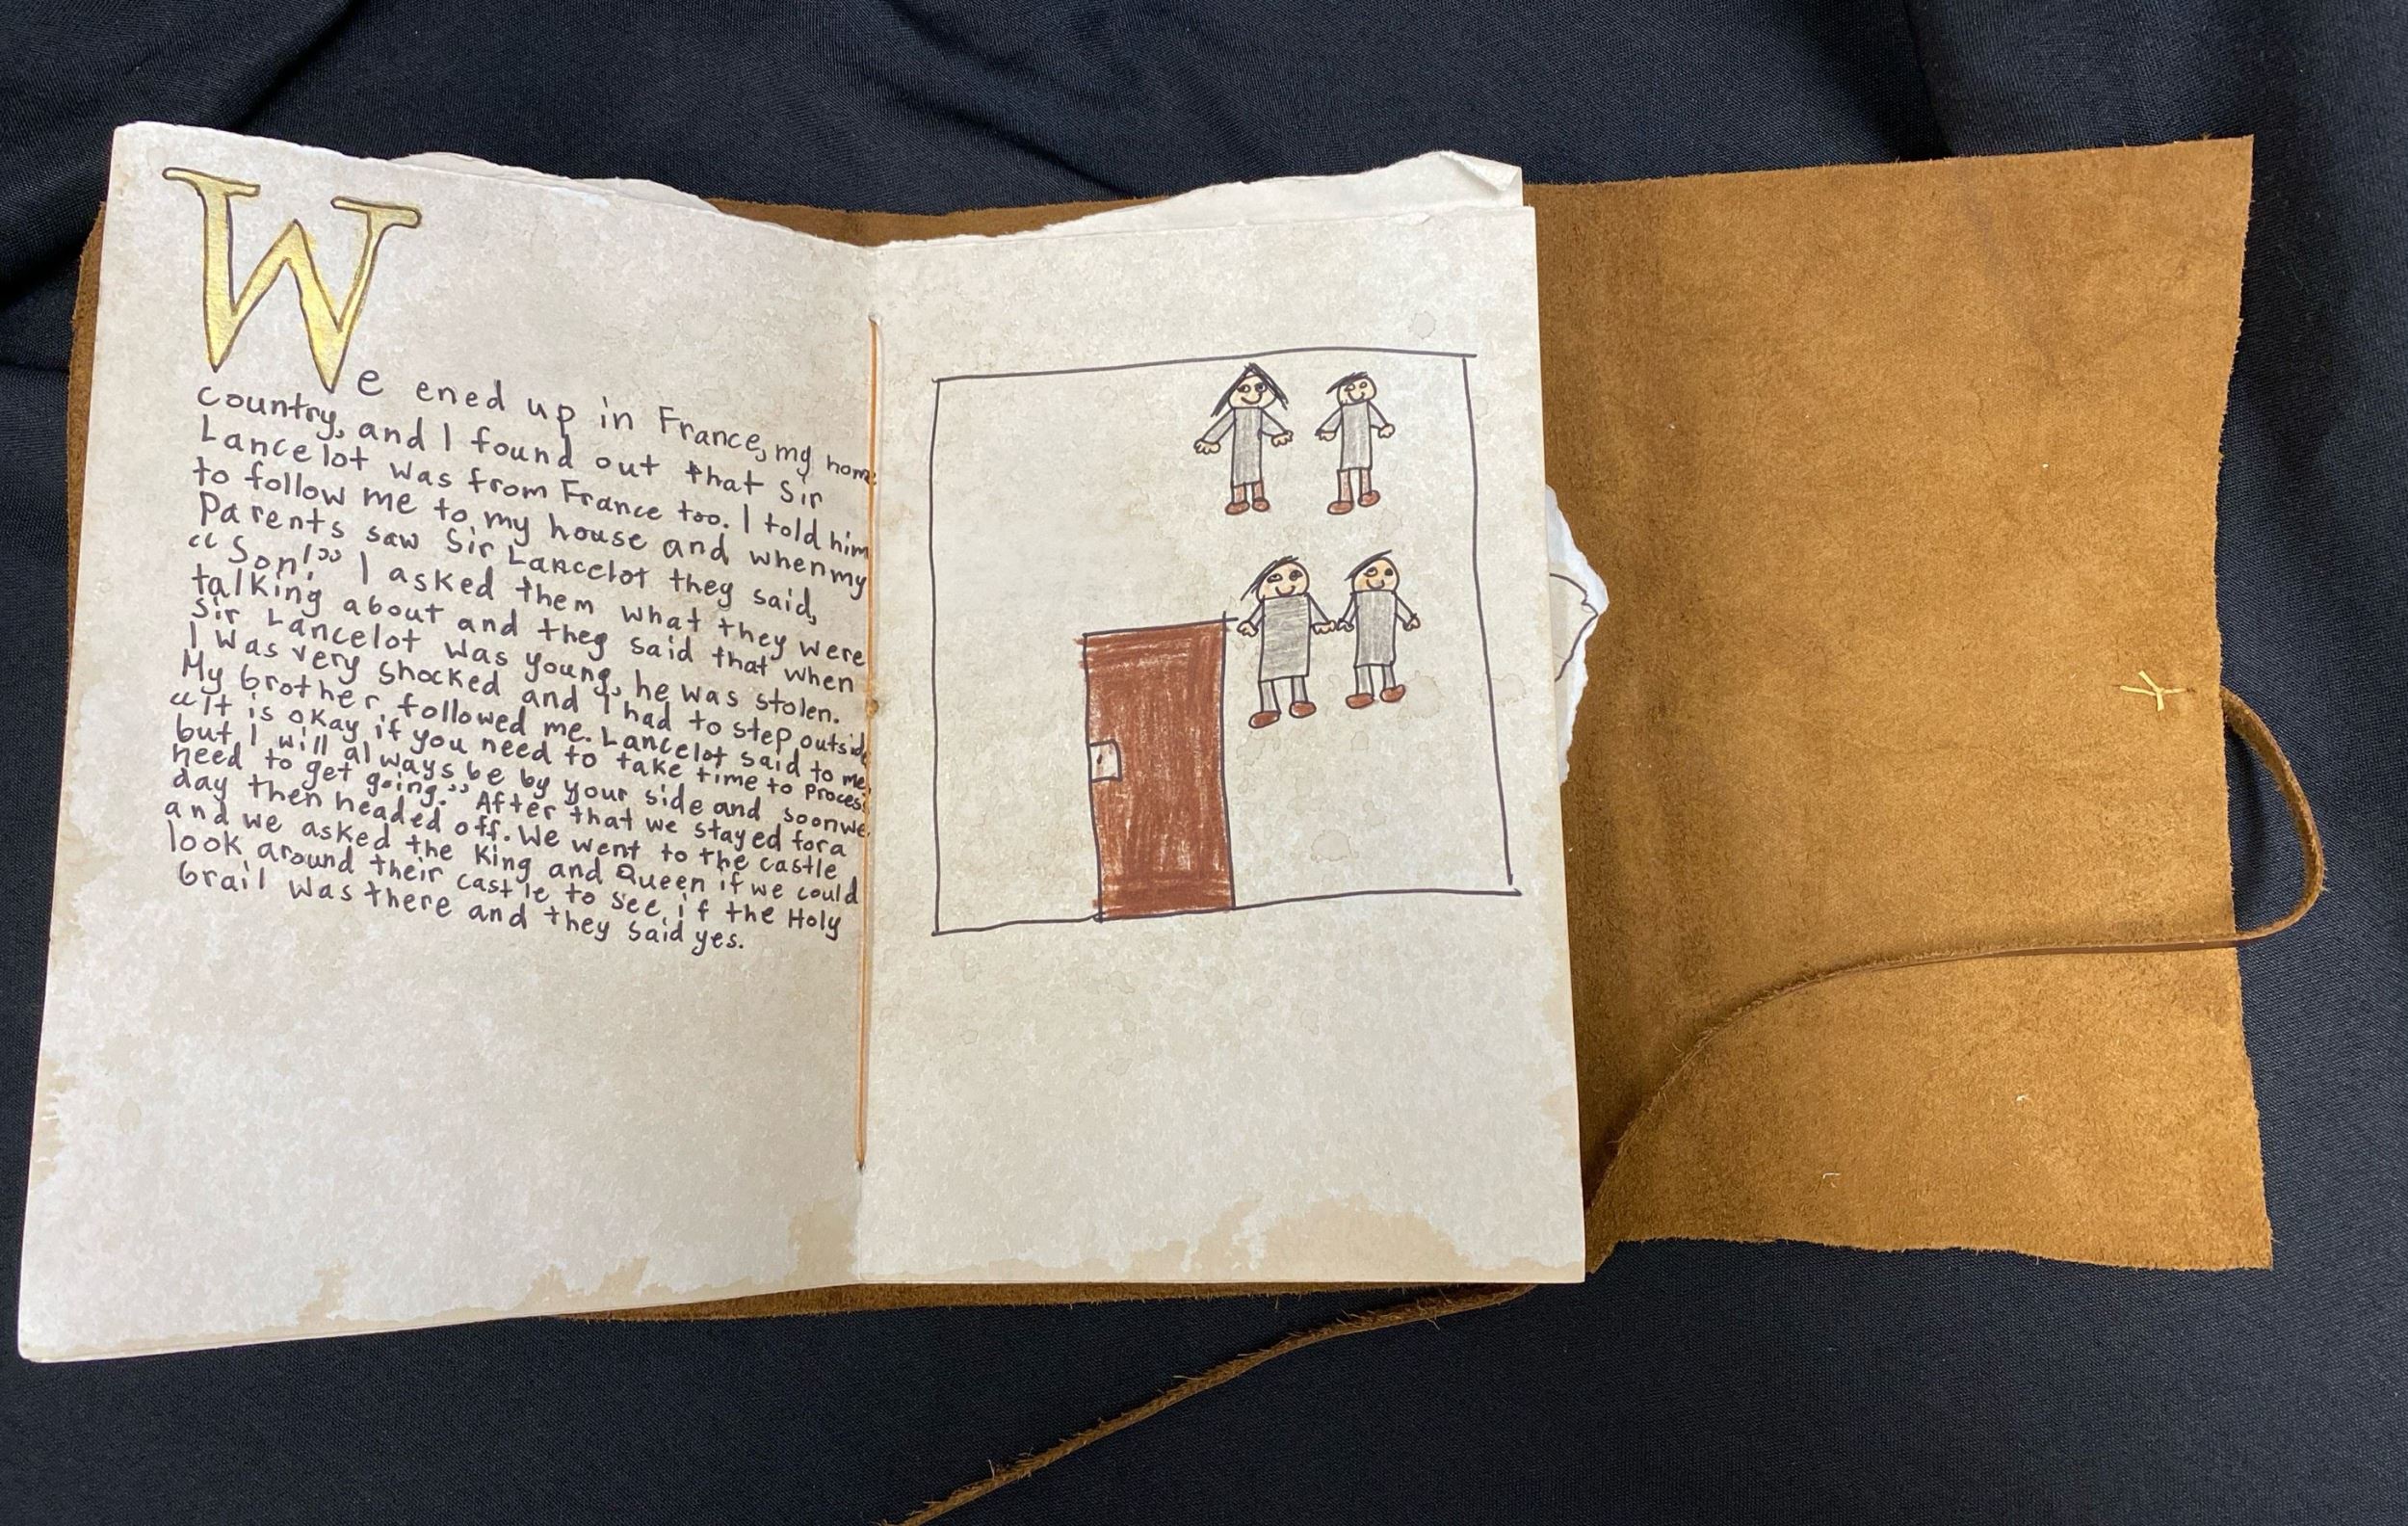 We ened up in France, my home
country, and I found out that Sir
Lancelot was from France too. I told him
to follow me to my house and when my
Parents saw Sir Lancelot they said,
“Son!” I asked them what they were
talking about and they said that when
Sir Lancelot was young, he was stolen.
I was very shocked and I had to step outside
My brother followed me. Lancelot said to me,
“It is okay if you need to take time to process
but I will always be by your side and soon we
need to get going.” After that we stayed for a
day then headed off. We went to the castle
and we asked the King and Queen if we could
look around their castle to see if the Holy
Grail was there and they said yes.